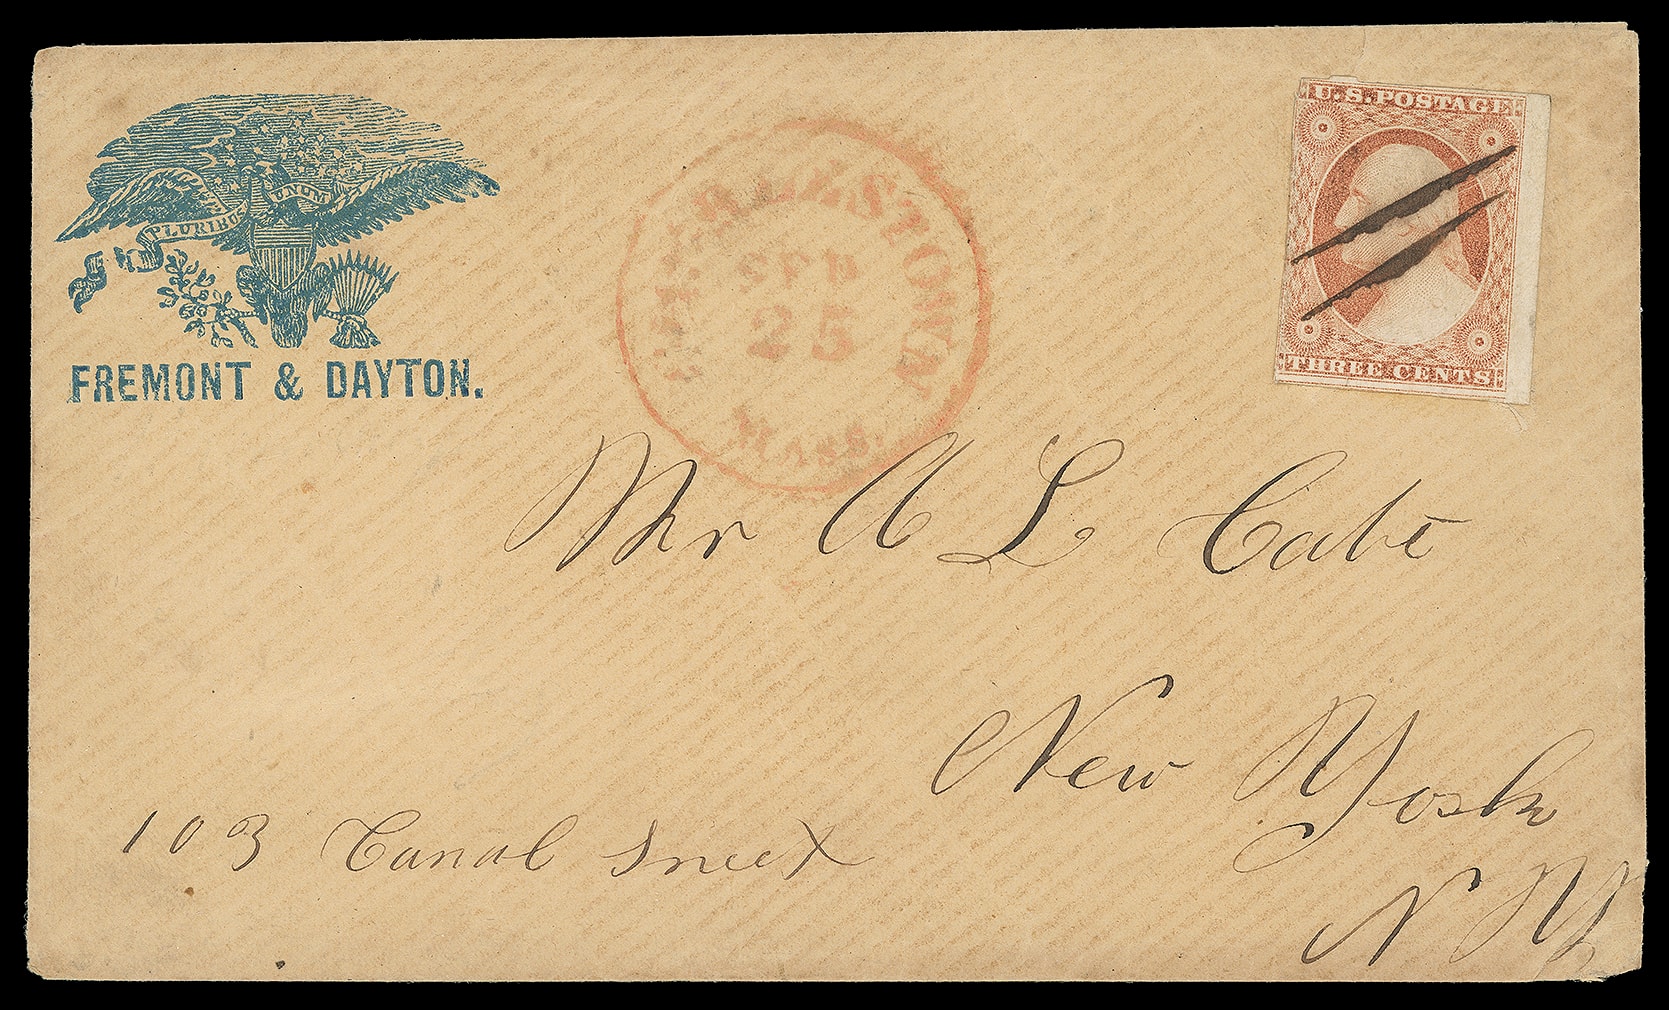 PLURIBUS UNUM
FREMONT & DAYTON.
SEP
25
MASS.
U.S. POSTAGE
THREE CENTS
Mr A L Cate
New York
103 Canal Street
N Y